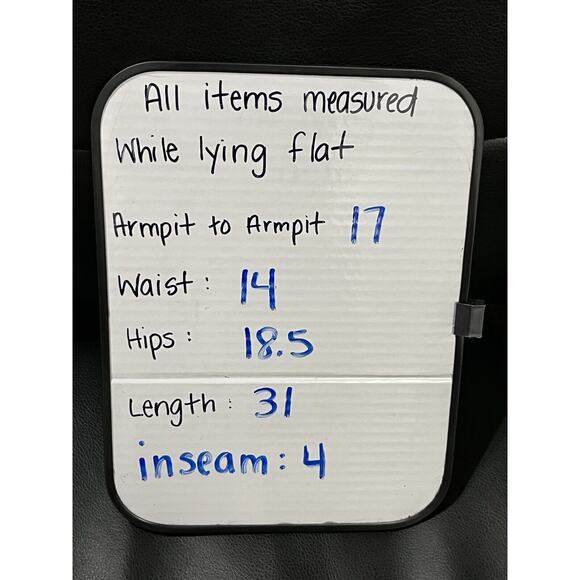 All items measured
While lying flat
Armpit to Armpit 17
Waist: 14
Hips: 18.5
Length: 31
inseam: 4